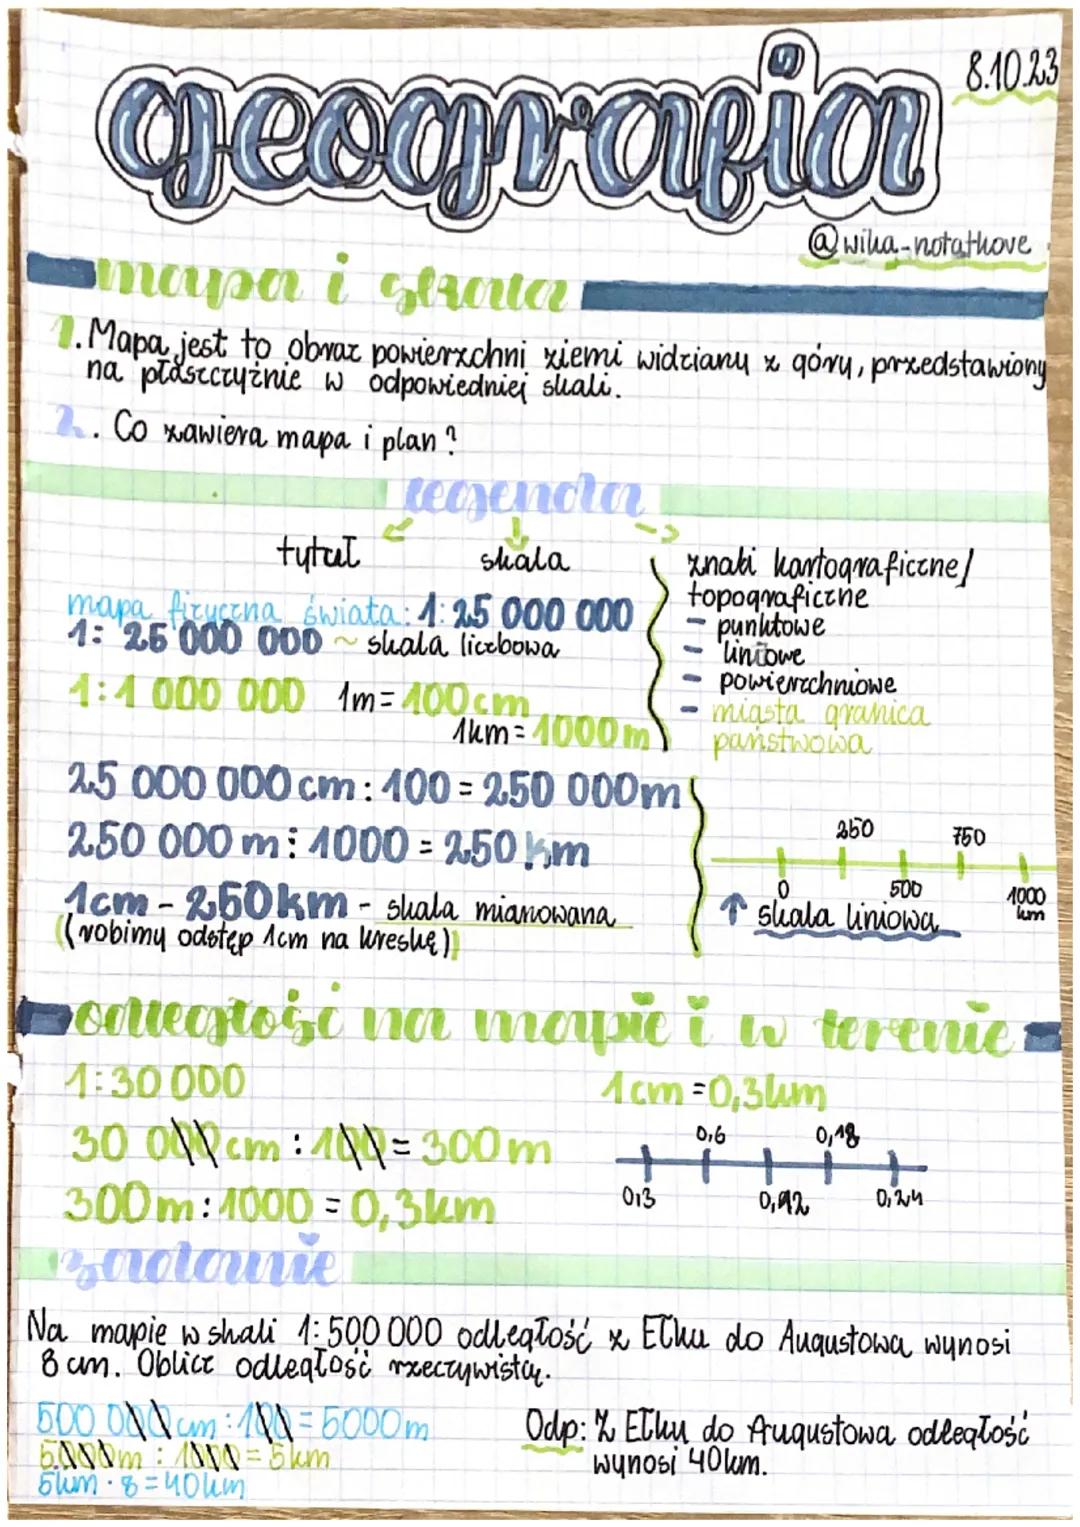 geografia
8.10.23
@wika-notatkove
mapa i skala
1. Mapa jest to obraz powierzchni ziemi widziany z góry, przedstawiony
na płaszczyźnie w odpowiedniej skali.
2. Co zawiera mapa i plan?
legenda
tytuł
skala
znaki kartograficzne/
topograficzne
- punktowe
- liniowe
- powierzchniowe
- miasta granica
państwowa
mapa fizyczna świata: 1:25 000 000
1: 25 000 000 ~ skala liczbowa
1:1 000 000 1m = 100cm
1km = 1000m
25 000 000 cm : 100 = 250 000m
250 000 m : 1000 = 250 km
1cm - 250km - skala mianowana
(robimy odstęp 1cm na kreskę)
250 750
0 500 1000
km
↑ skala liniowa
odległość na mapie i w terenie
1:30 000
30 000 cm : 100 = 300m
300m : 1000 = 0,3km
1cm = 0,3km
0,6 0,18
0,3 0,12 0,24
zadanie
Na mapie w skali 1:500 000 odległość z Ełku do Augustowa wynosi
8 cm. Oblicz odległość rzeczywistą.
500 000 cm : 100 = 5000m
5000m : 1000 = 5km
5km · 8 = 40km
Odp: Z Ełku do Augustowa odległość
wynosi 40km.